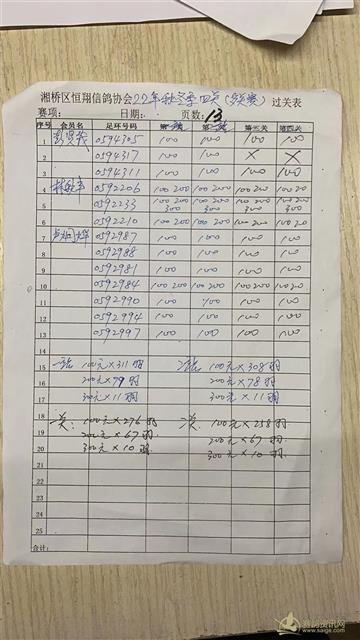 湘桥区恒翔信鸽协会22年秋冬季四关(预赛)过关表
赛项： 日期： 页数：13
序号 会员名 足环号码 第一关 第二关 第三关 第四关
1 0594305 100 100 100 100
2 0594317 100 100 X X
3 0594311 100 100 100 100
4 0592206 100 200 100 200 100 200 100 200
5 0592233 100 200 300 100 200 300 100 200 300 100 200 300
6 0592210 100 200 100 200 100 200 100 200
7 0592987 100 100 100 100
8 0592988 100 100 100 100
9 0592981 100 100 100 100
10 0592984 100 200 100 200 100 200 100 200
11 0592990 100 100 100 100
12 0592994 100 100 100 100
13 0592997 100 100 100 100
14
15 100元×311羽 100元×308羽
16 200元×79羽 200元×78羽
17 300元×11羽 300元×11羽
18 100元×276羽 100元×258羽
19 200元×67羽 200元×67羽
20 300元×10羽 300元×10羽
21
22
23
24
25
合计：
赛鸽资讯网
www.saige.com